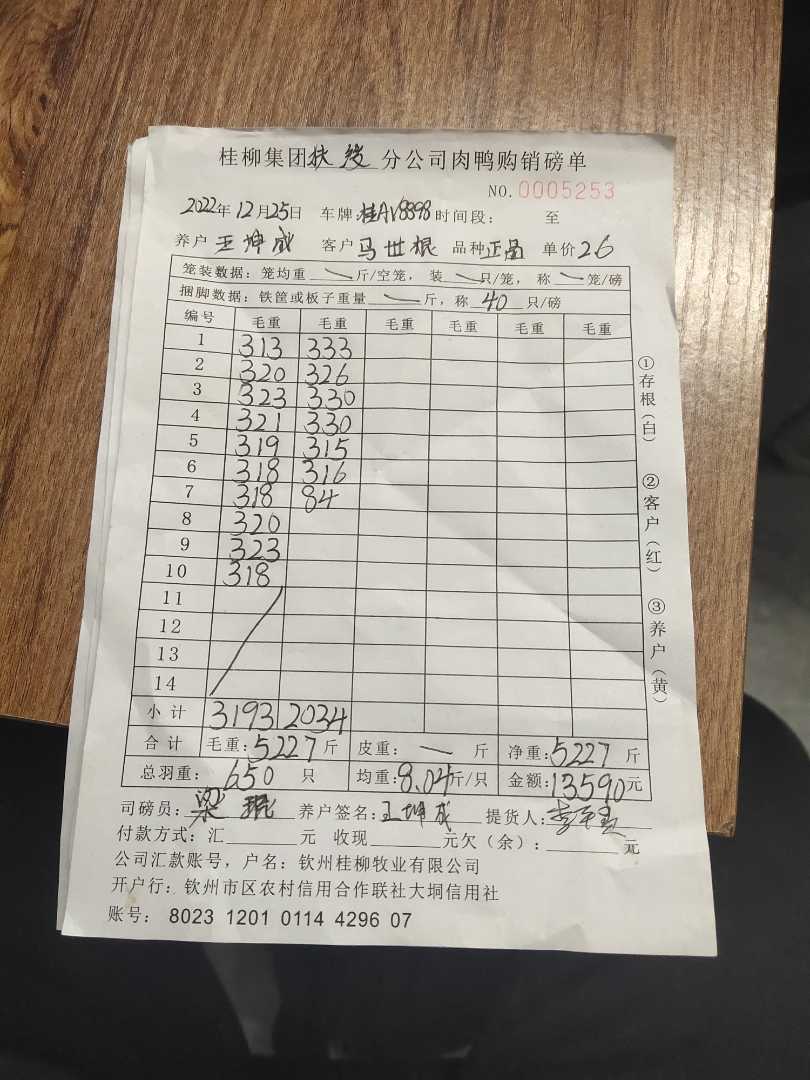 桂柳集团扶绥分公司肉鸭购销磅单
NO.0005253
2022年12月25日 车牌:桂AV8898 时间段: 至
养户 王坤成 客户 马世根 品种 正品 单价 2.6
笼装数据:笼均重 — 斤/空笼, 装 — 只/笼, 称 — 笼/磅
捆脚数据:铁筐或板子重量 — 斤,称 40 只/磅
编号 毛重 毛重 毛重 毛重 毛重 毛重
1 313 333
2 320 326
3 323 330
4 321 330
5 319 315
6 318 316
7 318 84
8 320
9 323
10 318
11
12
13
14
小计 3193 2034
合计 毛重:5227斤 皮重: — 斤 净重:5227斤
总羽重: 650 只 均重:8.04斤/只 金额:13590元
司磅员:梁 养户签名:王坤成 提货人:李
付款方式:汇 元 收现 元欠(余): 元
公司汇款账号,户名:钦州桂柳牧业有限公司
开户行:钦州市区农村信用合作联社大垌信用社
账号: 8023 1201 0114 4296 07
①存根(白)
②客户(红)
③养户(黄)